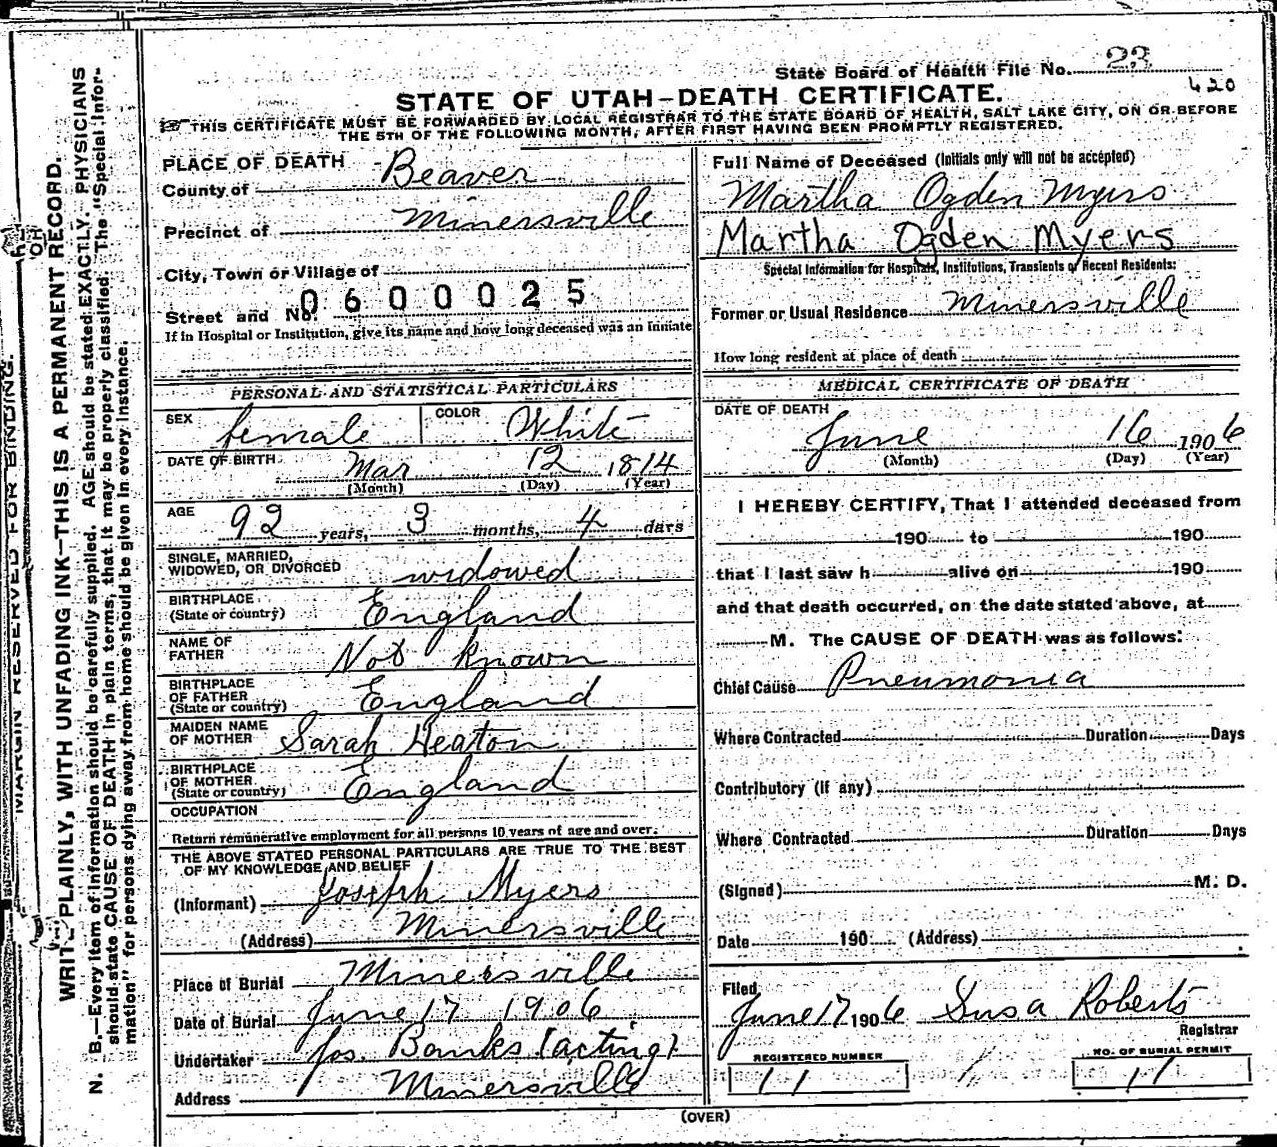 State Board of Health File No. 23
420
STATE OF UTAH—DEATH CERTIFICATE.
THIS CERTIFICATE MUST BE FORWARDED BY LOCAL REGISTRAR TO THE STATE BOARD OF HEALTH, SALT LAKE CITY, ON OR BEFORE
THE 5TH OF THE FOLLOWING MONTH, AFTER FIRST HAVING BEEN PROMPTLY REGISTERED.
PLACE OF DEATH
County of Beaver
Precinct of Minersville
City, Town or Village of
Street and No. 0600025
If in Hospital or Institution, give its name and how long deceased was an Inmate
PERSONAL AND STATISTICAL PARTICULARS
SEX female COLOR White
DATE OF BIRTH Mar 12 1814
(Month) (Day) (Year)
AGE 92 years, 3 months, 4 days
SINGLE, MARRIED,
WIDOWED, OR DIVORCED widowed
BIRTHPLACE
(State or country) England
NAME OF
FATHER Not known
BIRTHPLACE
OF FATHER
(State or country) England
MAIDEN NAME
OF MOTHER Sarah Heaton
BIRTHPLACE
OF MOTHER
(State or country) England
OCCUPATION
Return remunerative employment for all persons 10 years of age and over.
THE ABOVE STATED PERSONAL PARTICULARS ARE TRUE TO THE BEST
OF MY KNOWLEDGE AND BELIEF
(Informant) Joseph Myers
(Address) Minersville
Place of Burial Minersville
Date of Burial June 17 1906
Undertaker Jos. Banks (acting)
Address Minersville
Full Name of Deceased (Initials only will not be accepted)
Martha Ogden Myers
Martha Ogden Myers
Special Information for Hospitals, Institutions, Transients or Recent Residents:
Former or Usual Residence Minersville
How long resident at place of death
MEDICAL CERTIFICATE OF DEATH
DATE OF DEATH
June 16 1906
(Month) (Day) (Year)
I HEREBY CERTIFY, That I attended deceased from
190 to 190
that I last saw h alive on 190
and that death occurred, on the date stated above, at
M. The CAUSE OF DEATH was as follows:
Chief Cause Pneumonia
Where Contracted Duration Days
Contributory (if any)
Where Contracted Duration Days
(Signed) M. D.
Date 190 (Address)
Filed
June 17 1906 Susa Roberts
Registrar
REGISTERED NUMBER NO. OF BURIAL PERMIT
11 11
(OVER)
MARGIN RESERVED FOR BINDING.
WRITE PLAINLY, WITH UNFADING INK—THIS IS A PERMANENT RECORD.
N. B.—Every item of information should be carefully supplied. AGE should be stated EXACTLY. PHYSICIANS
should state CAUSE OF DEATH in plain terms, that it may be properly classified. The "Special Infor-
mation" for persons dying away from home should be given in every instance.